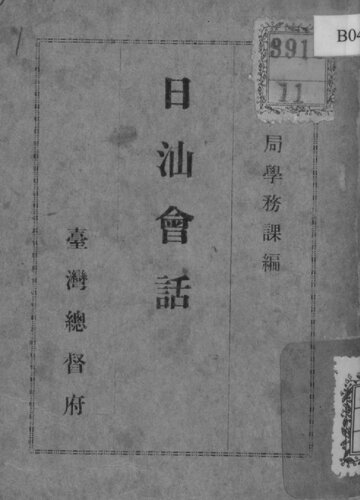 局學務課編
日汕會話
臺灣總督府
391
11
B04